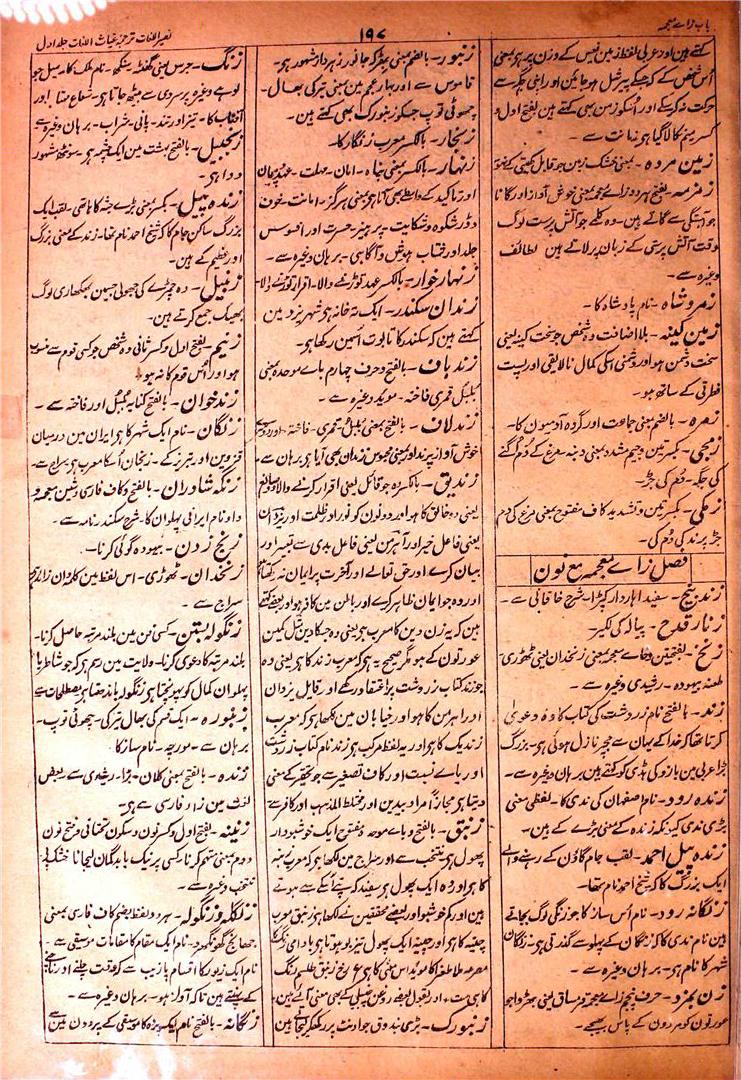 باب زائے معجمہ
۱۹۷
نصیر اللغات ترجمۂ غیاث اللغات جلد اول
کہتے ہین اور عربی لفظ زمین نفیس کے وزن پر ہو بمعنی
اُس شخص کے کہ جسکے پیر شل ہو جائین اور اپنی جگہ سے
حرکت نہ کر سکے اور اُسکو زمن بھی کہتے ہین بفتح اول و
کسر میم نکالا گیا ہو زمانت سے ۔
زمین مردہ ۔ بمعنی خشک زمین جو قابل کھیتی کے نہو
زمزمہ ۔ بفتح ہر دو زائے معجمہ بمعنی خوش آواز اور گانا
جو آہستگی سے گاتے ہین ۔ وہ کلمے جو آتش پرست لوگ
وقت آتش پرستی کے زبان پر لاتے ہین لطائف
وغیرہ سے ۔
زمرو شاہ ۔ نام بادشاہ کا ۔
زمین کینہ ۔ بلا اضافت وہ شخص جو سخت کینہ یعنی
سخت دشمن ہو اور دشمنی اسکی کمال نالایقی اور پست
فطرتی کے ساتھ ہو ۔
زمرہ ۔ بالضم بمعنی جماعت اور گروہ آدمیون کا ۔
زمجی ۔ بکسرتین و جیم مشدد بمعنی دمبہ مرغ کے دُم اُگنے
کی جگہ ۔ دُم کی جڑ ۔
زمکی ۔ بکسرتین و تشدید کاف مفتوح بمعنی مرغ کی دم
جڑ پرند کی دُم کی ۔
فصل زائے معجمہ مع نون
زند پیچ ۔ سفید اہاردار کپڑا ۔ شرح خاقانی سے ۔
زنار قدح ۔ پیالہ کی لکیر ۔
زنخ ۔ بفتحتین و خائے معجمہ بمعنی زنخدان یعنی ٹھوڑی ۔
طعنہ بیہودہ ۔ رشیدی وغیرہ سے ۔
زند ۔ بالفتح نام زردشت کی کتاب کا وہ دعویٰ
کرتا تھا کہ خدا کے یہان سے مجھپر نازل ہوئی ہو ۔ بزرگ
بڑا عربی مین بازو کی ہڈی کو کہتے ہین برہان وغیرہ سے ۔
زندہ رود ۔ نام اصفہان کی ندی کا ۔ لفظی معنی
بڑی ندی کیونکہ زندہ کے معنی بڑے کے ہین ۔
زندہ پیل احمد ۔ لقب جام گاؤن کے رہنے والے
ایک بزرگ کا کہ شیخ احمد نام تھا ۔
زنگانہ رود ۔ نام اُس ساز کا جو زنگی لوگ بجاتے
ہین نام ندی کا کہ زنگان کے پہلو سے گذرتی ہو ۔ زنگان
شہر کا نام ہو ۔ برہان وغیرہ سے ۔
زن بمزد ۔ حرف پنجم زائے معجمہ قرمساق یعنی بھڑوا جو
عورتون کو مردون کے پاس بھیجے ۔
زنبور ۔ بالضم بمعنی بھڑ کہ جانور زہردار مشہور ہو ۔
قاموس سے اور بہار عجم مین بمعنی تیر کی بھال ۔
چھوٹی توپ جسکو زنبورک بھی کہتے ہین ۔
زنجار ۔ بالکسر معرب زنگار کا ۔
زنہار ۔ بالکسر بمعنی پناہ ۔ امان ۔ مہلت ۔ عہد و پیمان
اور تاکید کے واسطے بھی آتا ہو بمعنی ہرگز ۔ امانت ۔ خوف
و ڈر شکوہ و شکایت ۔ پرہیز حسرت اور افسوس
جلد اور شتاب ہوش و آگاہی ۔ برہان وغیرہ سے ۔
زنہار خوار ۔ بالکسر عہد توڑنے والا ۔ اقرار توڑنے والا ۔
زندان سکندر ۔ ایک تہ خانہ ہو شہر یزد مین
کہتے ہین کہ سکندر کا تابوت اُسمین رکھا ہو ۔
زند باف ۔ بالفتح و حرف چہارم بائے موحدہ بمعنی
بلبل قمری فاختہ ۔ موید وغیرہ سے ۔
زند لاف ۔ بالفتح بمعنی بلبل قمری ۔ فاختہ اور دوسرے
خوش آواز پرند اور بمعنی محبوس زندان بھی آیا ہو برہان سے ۔
زندیق ۔ بالکسر وہ جو قائل یعنی اقرار کرنے والا دو صانع
یعنی دو خالق کا ہو اور دونون کو نور اور ظلمت اور یزدان
یعنی فاعل خیر اور آہرمن یعنی فاعل بدی سے تعبیر اور
بیان کرے اور حق تعالےٰ اور آخرت پر ایمان نہ رکھتا ہو
اور وہ جو ایمان ظاہر کرے اور باطن مین کافر ہو اور بعضے کہتے
ہین کہ یہ زن دین کا معرب ہو یعنی وہ جسکا دین مثل دین
عورتون کے ہو مگر صحیح یہ ہو کہ معرب زندی کا ہو یعنی وہ
جو زند کتاب زردشت پر اعتقاد رکھے اور قایل یزدان
اور اہرمن کا ہو اور خیابان مین لکھا ہو کہ معرب
زندیک کا ہو اور یہ لفظ مرکب ہو زند نام کتاب زردشت
اور یائے نسبت اور کاف تصغیر سے جو تحقیر کے معنی
دیتا ہو مجازاً مراد بیدین اور مختلط المذہب اور کافر سے
زنبق ۔ بالفتح و بائے موحدہ مفتوح ایک خوشبودار
پھول ہو منتخب سے اور سراج مین لکھا ہو کہ معرب زنبہ
کا ہو اور وہ ایک پھول ہو سفید کہ پتے اُسکے سے ہوتے
ہین اور کم خوشبو اور بعضے محققین نے لکھا ہو زنبق معرب
چنپہ کا ہو اور چنپہ ایک پھول تیز بو ہوتا ہو بادامی رنگ کا
مصرعہ ملا طغرا کا موید اس معنی کا ہو ع زنج زنبق طلسم رنگ
کاہی ست ۔ اور بقول بعضے روغن چنبیلی کے بھی معنی آئے ہین
زنبورک ۔ بڑی بندوق جو اونٹ پر رکھکر لیجاتے ہین
زنگ ۔ جرس یعنی گھنٹہ سنکھ ۔ نام ملک کا ۔ میل جو
لوہے وغیرہ پر سردی سے بیٹھ جاتا ہو ۔ شعاع ماہتاب اور
آفتاب کا ۔ تیز اور تند ۔ پانی ۔ شراب ۔ برہان وغیرہ سے
زنجبیل ۔ بالفتح بہشت مین ایک چشمہ ہو ۔ سونٹھ مشہور
دوا ہو ۔
زندہ پیل ۔ بکسر بمعنی بڑے جثہ کا ہاتھی ۔ لقب ایک
بزرگ ساکن جام کا کہ شیخ احمد نام تھا ۔ زندہ کے معنی بزرگ
اور عظیم کے ہین ۔
زنبیل ۔ وہ چمڑے کی جھولی جسمین بھکھاری لوگ
بھیک جمع کرتے ہین ۔
زنیم ۔ بفتح اول و کسر ثانی وہ شخص جو کسی قوم سے منسوب
ہو اور اُس قوم کا نہ ہو
زند خوان ۔ بالفتح کنایہ بلبل اور فاختہ سے ۔
زنگان ۔ نام ایک شہر کا ہو ایران مین درمیان
قزوین اور تبریز کے ۔ زنجان اُسکا معرب ہو سراج سے ۔
زنگہ شاوران ۔ بالفتح و کاف فارسی و شین معجمہ و
واو نام ایرانی پہلوان کا ۔ شرح سکندر نامہ سے ۔
زنخ زدن ۔ بیہودہ گوئی کرنا ۔
زنخدان ۔ ٹھوڑی ۔ اس لفظ مین کلمہ دان زائد ہو
سراج سے ۔
زنگولہ بستن ۔ کسی فن مین بلند مرتبہ حاصل کرنا ۔
بلند مرتبہ کا دعویٰ کرنا ۔ ولایت مین رسم ہو کہ جو شاطر یا
پہلوان کمال کو پہونچتا ہو زنگولہ باندھتا ہو مصطلحات سے
زنبورہ ۔ ایک قسم کی بھال تیر کی ۔ چھوٹی توپ ۔
برہان سے ۔ مورچہ ۔ نام ساز کا ۔
زندہ ۔ بالفتح بمعنی کلان ۔ بڑا ۔ رشیدی سے بعض
لغت مین زاے فارسی سے ہو ۔
زنینہ ۔ بفتح اول و کسر نون و سکون تحتانی و فتح نون
دوم بمعنی متہم کرنا کسی پر نیک یا بد گمان لیجانا خشک پی
منتخب وغیرہ سے ۔
زنگلہ و زنگولہ ۔ ہر دو لفظ بضم کاف فارسی بمعنی
جھانجھ گھونگھرو ۔ نام ایک مقام کا مقامات موسیقی سے ۔
نام ایک زیور کا اقسام پازیب سے کہ وقت چلنے اور ناچنے
کے پہنتے ہین تاکہ آواز ہو ۔ برہان وغیرہ سے ۔
زنگانہ ۔ بالفتح نام ایک پردہ کا موسیقی کے پردون مین سے